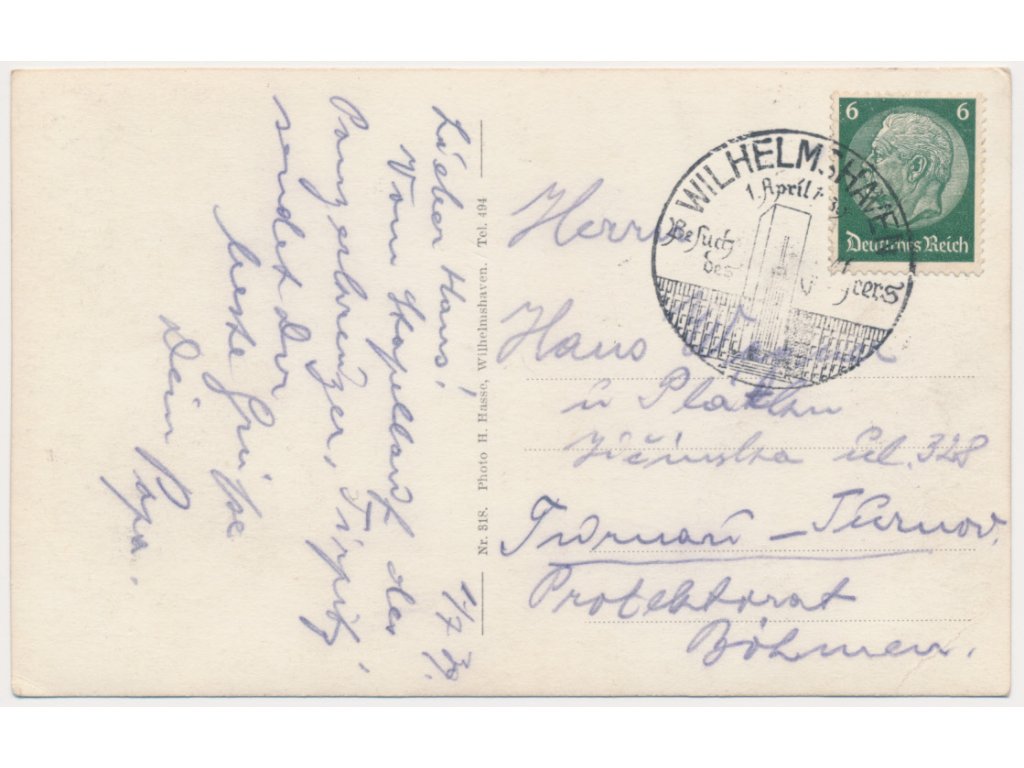 Lieber Hans! 1/4 39.
Vom Stapellauf des
Panzerkreuzer „Tirpitz"
sendet Dir
beste Grüße
Dein Papa.
Nr. 318. Photo H. Hasse, Wilhelmshaven. Tel. 494
6 6
Deutsches Reich
WILHELMSHAVEN
1. April 1939
Besuch
des Führers
Herrn
Hans
u Plátku
Jičínska ul. 328
Turnau – Turnov.
Protektorat
Böhmen.